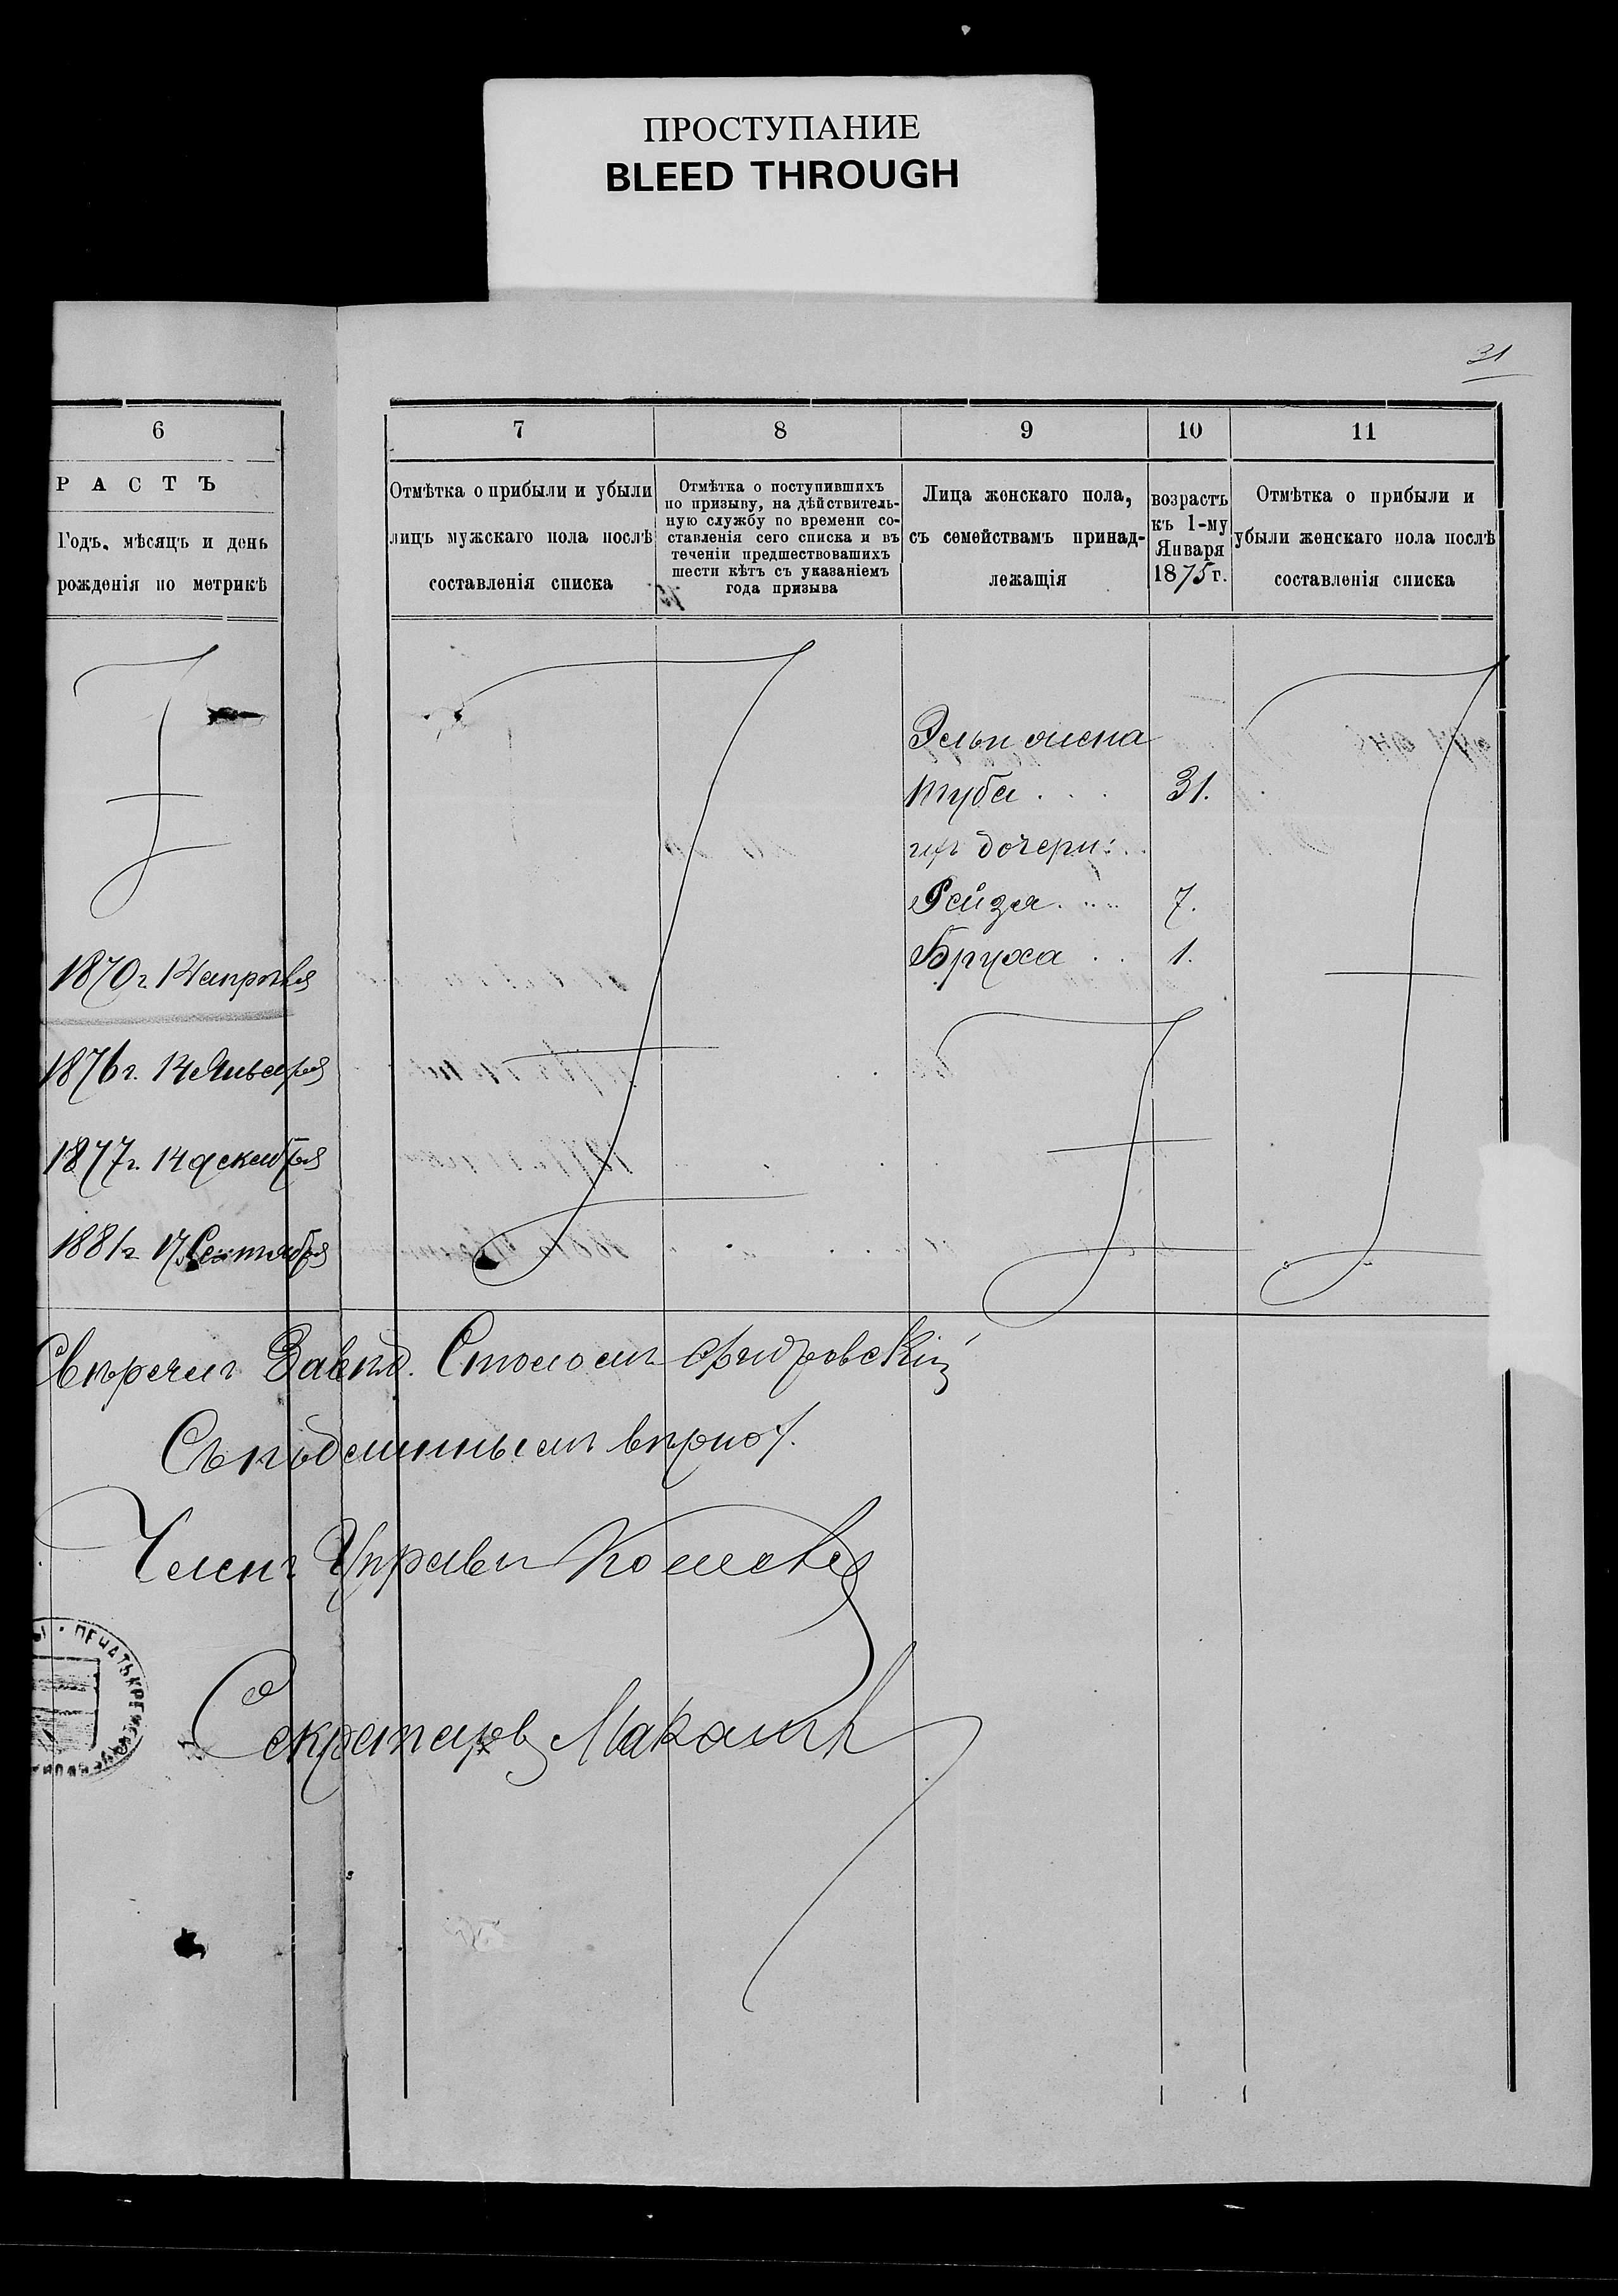 ПРОСТУПАНИЕ
BLEED THROUGH
31
6
7
8
9
10
11
РАСТЪ
Годъ, мѣсяцъ и день
рожденія по метрикѣ
Отмѣтка о прибыли и убыли
лицъ мужскаго пола послѣ
составленія списка
Отмѣтка о поступившихъ
по призыву, на дѣйствитель-
ную службу по времени со-
ставленія сего списка и въ
теченіи предшествовашихъ
шести кѣтъ съ указаніемъ
года призыва
Лица женскаго пола,
съ семействамъ принад-
лежащія
возрастъ
къ 1-му
Января
1875 г.
Отмѣтка о прибыли и
убыли женскаго пола послѣ
составленія списка
жена
Туба . . . 31.
ихъ дочери:
Рейзя . . . 7.
Бруха . . 1.
1870 г. 14 апрѣля
1876 г. 14 Января
1877 г. 14 декабря
1881 г. 17 Сентября
Свѣрялъ Завѣд. Столомъ
Съ подлиннымъ вѣрно
Членъ Управы
Секретарь
ПЕЧАТЬ КРЕМЕНЧУГСКОЙ